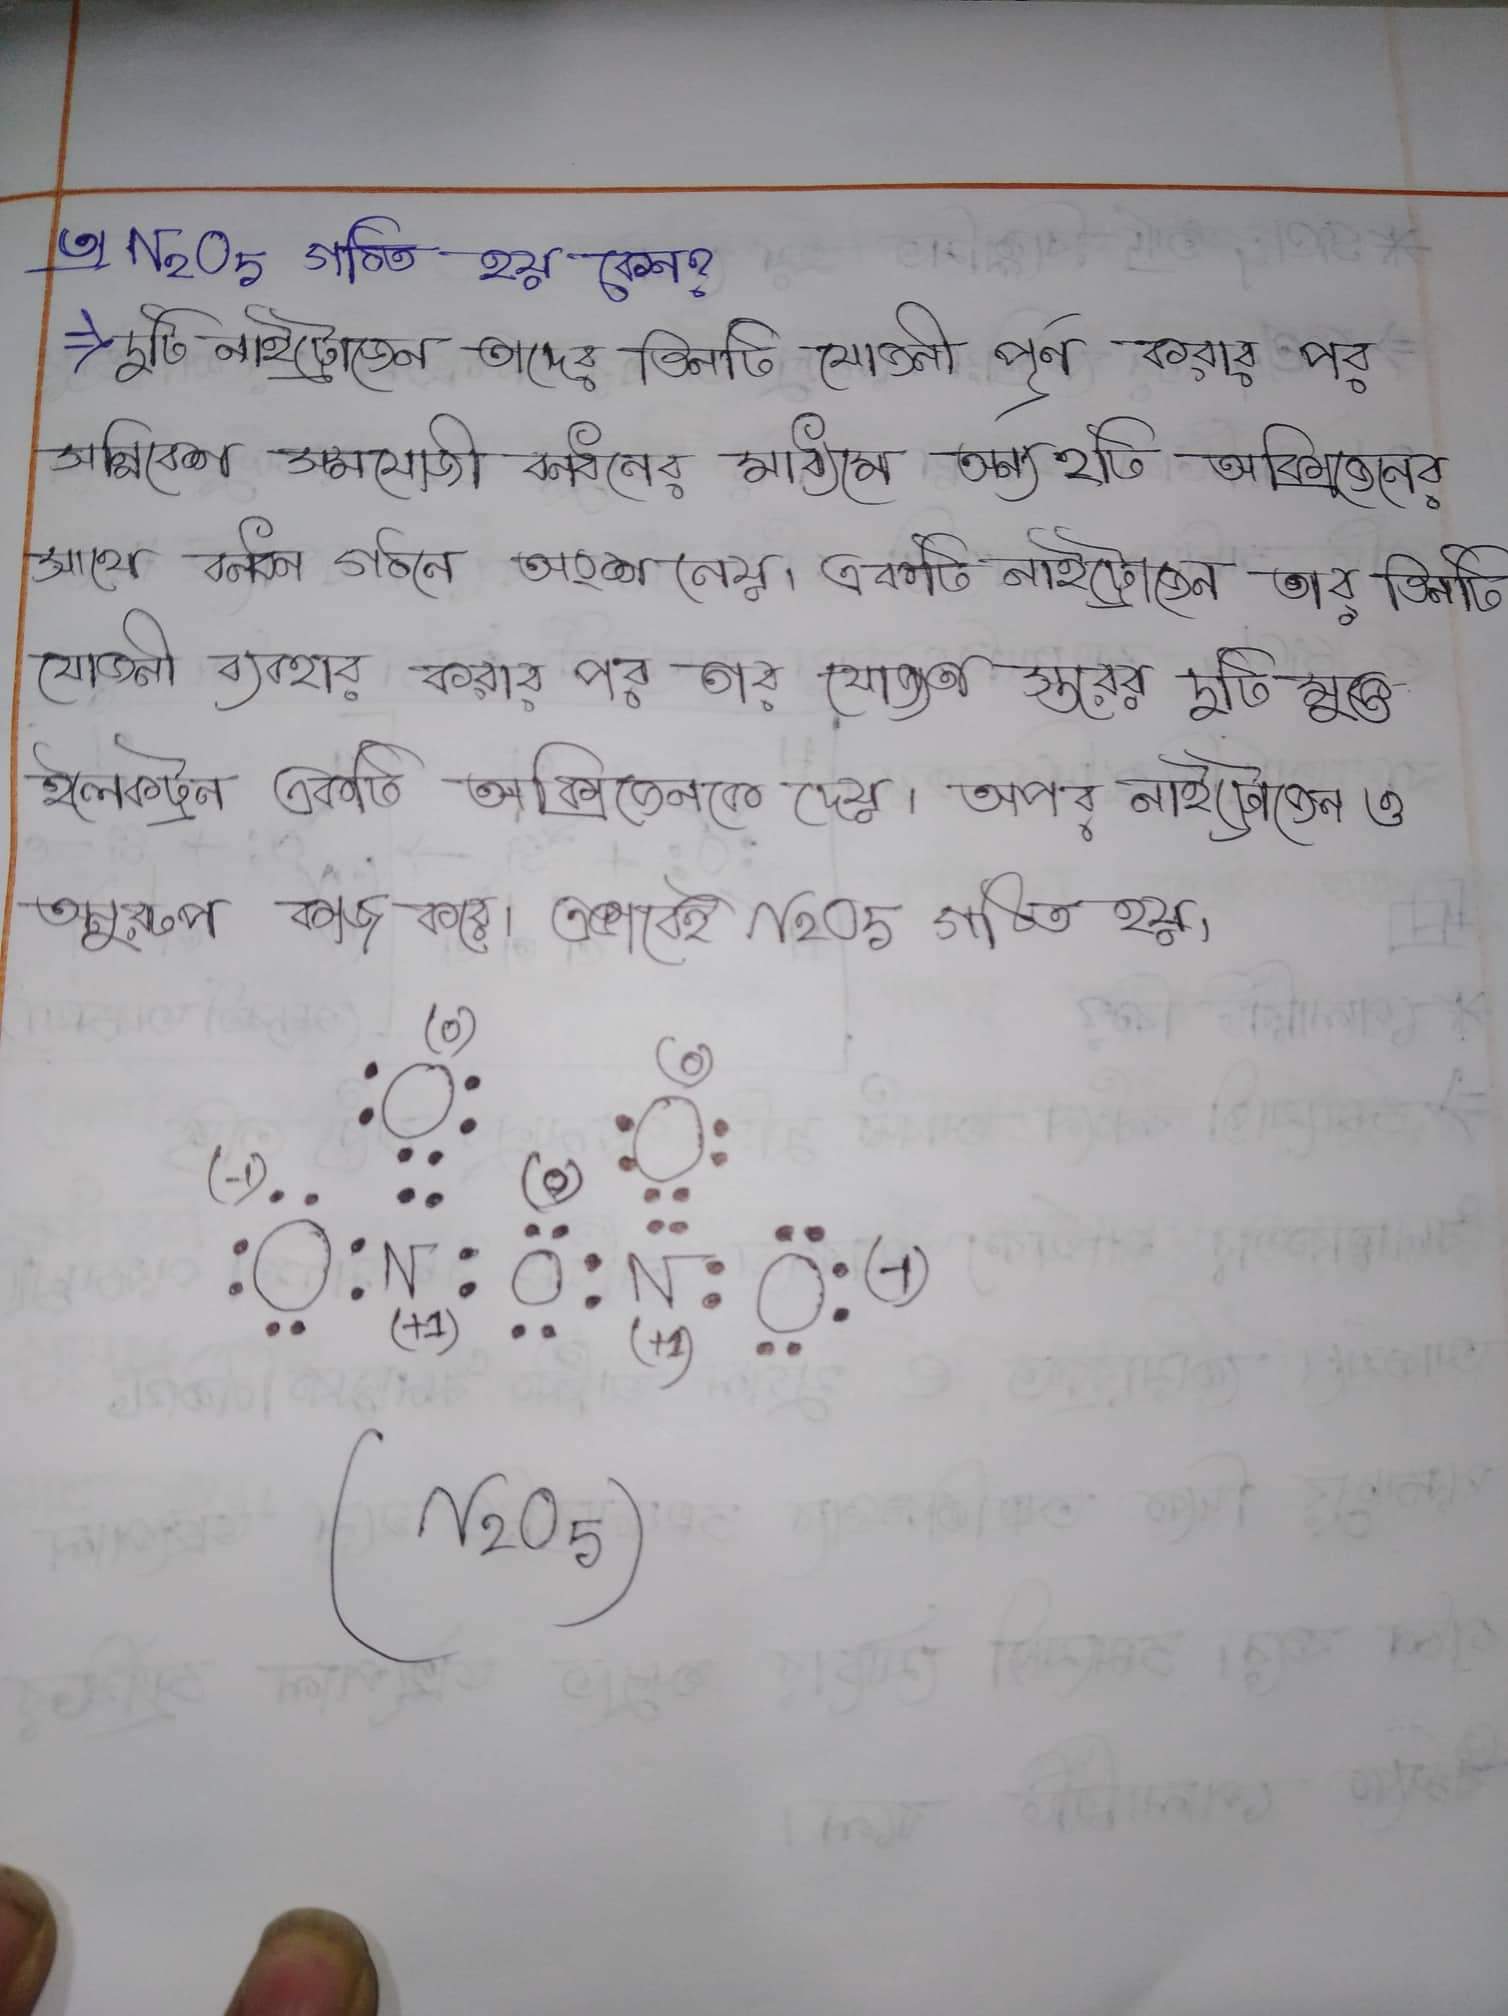 N₂O₅ গঠিত হয় কেন?
⇒ দুটি নাইট্রোজেন তাদের তিনটি যোজনী পূর্ন করার পর
সন্নিবেশ সমযোজী বন্ধনের মাধ্যমে অন্য ২টি অক্সিজেনের
সাথে বন্ধন গঠনে অংশ নেয়। একটি নাইট্রোজেন তার তিনটি
যোজনী ব্যবহার করার পর তার যোজ্যতা স্তরের দুটি মুক্ত
ইলেকট্রন একটি অক্সিজেনকে দেয়। অপর নাইট্রোজেন ও
অনুরূপ কাজ করে। এভাবেই N₂O₅ গঠিত হয়।
(0) (0)
O O
(-1) (0)
O N O N O (-1)
(+1) (+1)
(N₂O₅)